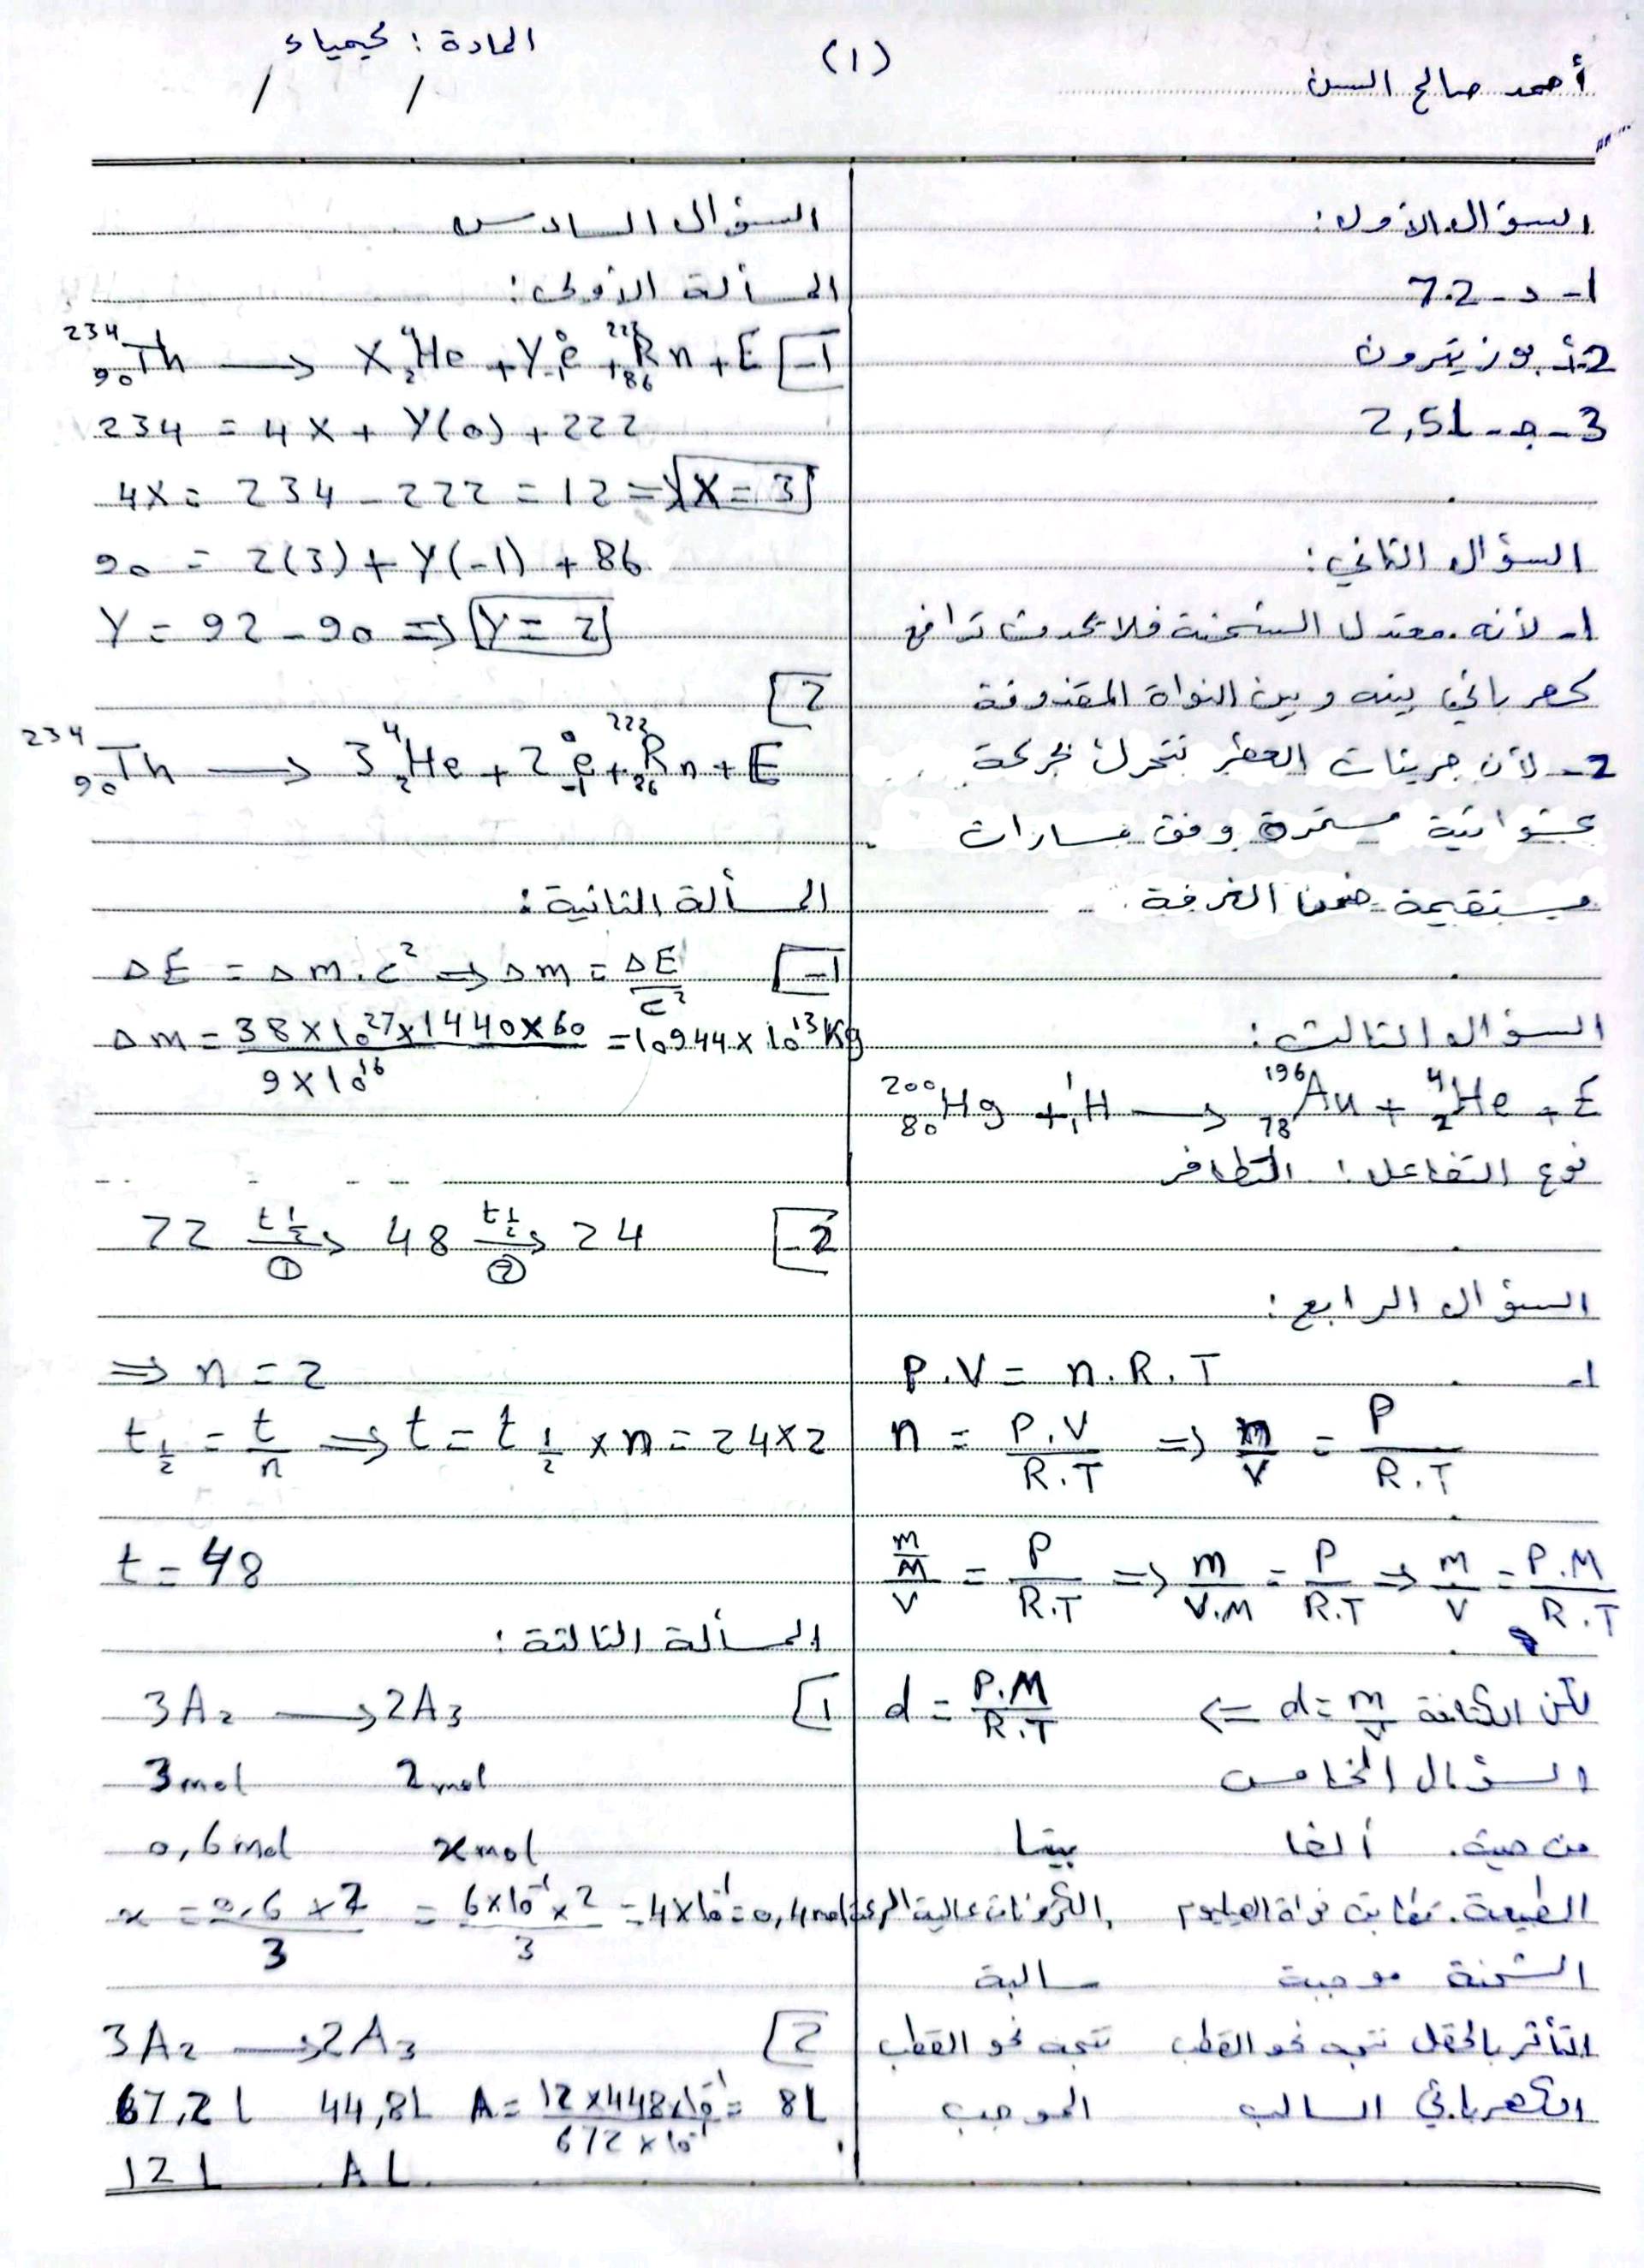 أحمد صالح السن
(1)
المادة : كيمياء
/ /
السؤال الأول:
1- د - 7.2
2- أ. بوزيترون
3 - جـ - 2,5L
السؤال الثاني:
1- لأنه معتدل الشحنة فلا يحدث تدافع
كهربائي بينه وبين النواة المقذوفة
2- لأن جزيئات العطر تتحرك بحركة
عشوائية مستمرة وفق مسارات
مستقيمة ضمن الغرفة
السؤال الثالث:
²⁰⁰₈₀Hg + ¹₁H → ¹⁹⁶₇₈Au + ⁴₂He + E
نوع التفاعل: التطافر
السؤال الرابع:
1- P.V = n.R.T
n = P.V / R.T ⇒ n/V = P / R.T
(m/M)/V = P / R.T ⇒ m / V.M = P / R.T ⇒ m/V = P.M / R.T
لكن الكثافة d = m/V ⇐ d = P.M / R.T
السؤال الخامس
من حيث. ألفا بيتا
الطبيعة. تطابق نواة الهيليوم الكترونات عالية السرعة
الشحنة موجبة سالبة
التأثر بالحقل تتجه نحو القطب تتجه نحو القطب
الكهربائي السالب الموجب
السؤال السادس
المسألة الأولى:
1- ²³⁴₉₀Th → X ⁴₂He + Y ⁰₋₁e + ²²²₈₆Rn + E
234 = 4X + Y(0) + 222
4X = 234 - 222 = 12 ⇒ X = 3
90 = 2(3) + Y(-1) + 86
Y = 92 - 90 ⇒ Y = 2
2
²³⁴₉₀Th → 3 ⁴₂He + 2 ⁰₋₁e + ²²²₈₆Rn + E
المسألة الثانية:
1- ΔE = Δm.c² ⇒ Δm = ΔE / c²
Δm = 38×10²⁷×1440×60 / 9×10¹⁶ = 10944×10¹³ Kg
2- 72 t½→ ① 48 t½→ ② 24
⇒ n = 2
t½ = t/n ⇒ t = t½ × n = 24×2
t = 48
المسألة الثالثة:
1 3A₂ → 2A₃
3mol 2mol
0,6mol xmol
x = 0,6 × 2 / 3 = 6×10⁻¹ × 2 / 3 = 4×10⁻¹ = 0,4mol
2 3A₂ → 2A₃
67,2L 44,8L A = 12×448×10⁻¹ / 672×10⁻¹ = 8L
12L AL